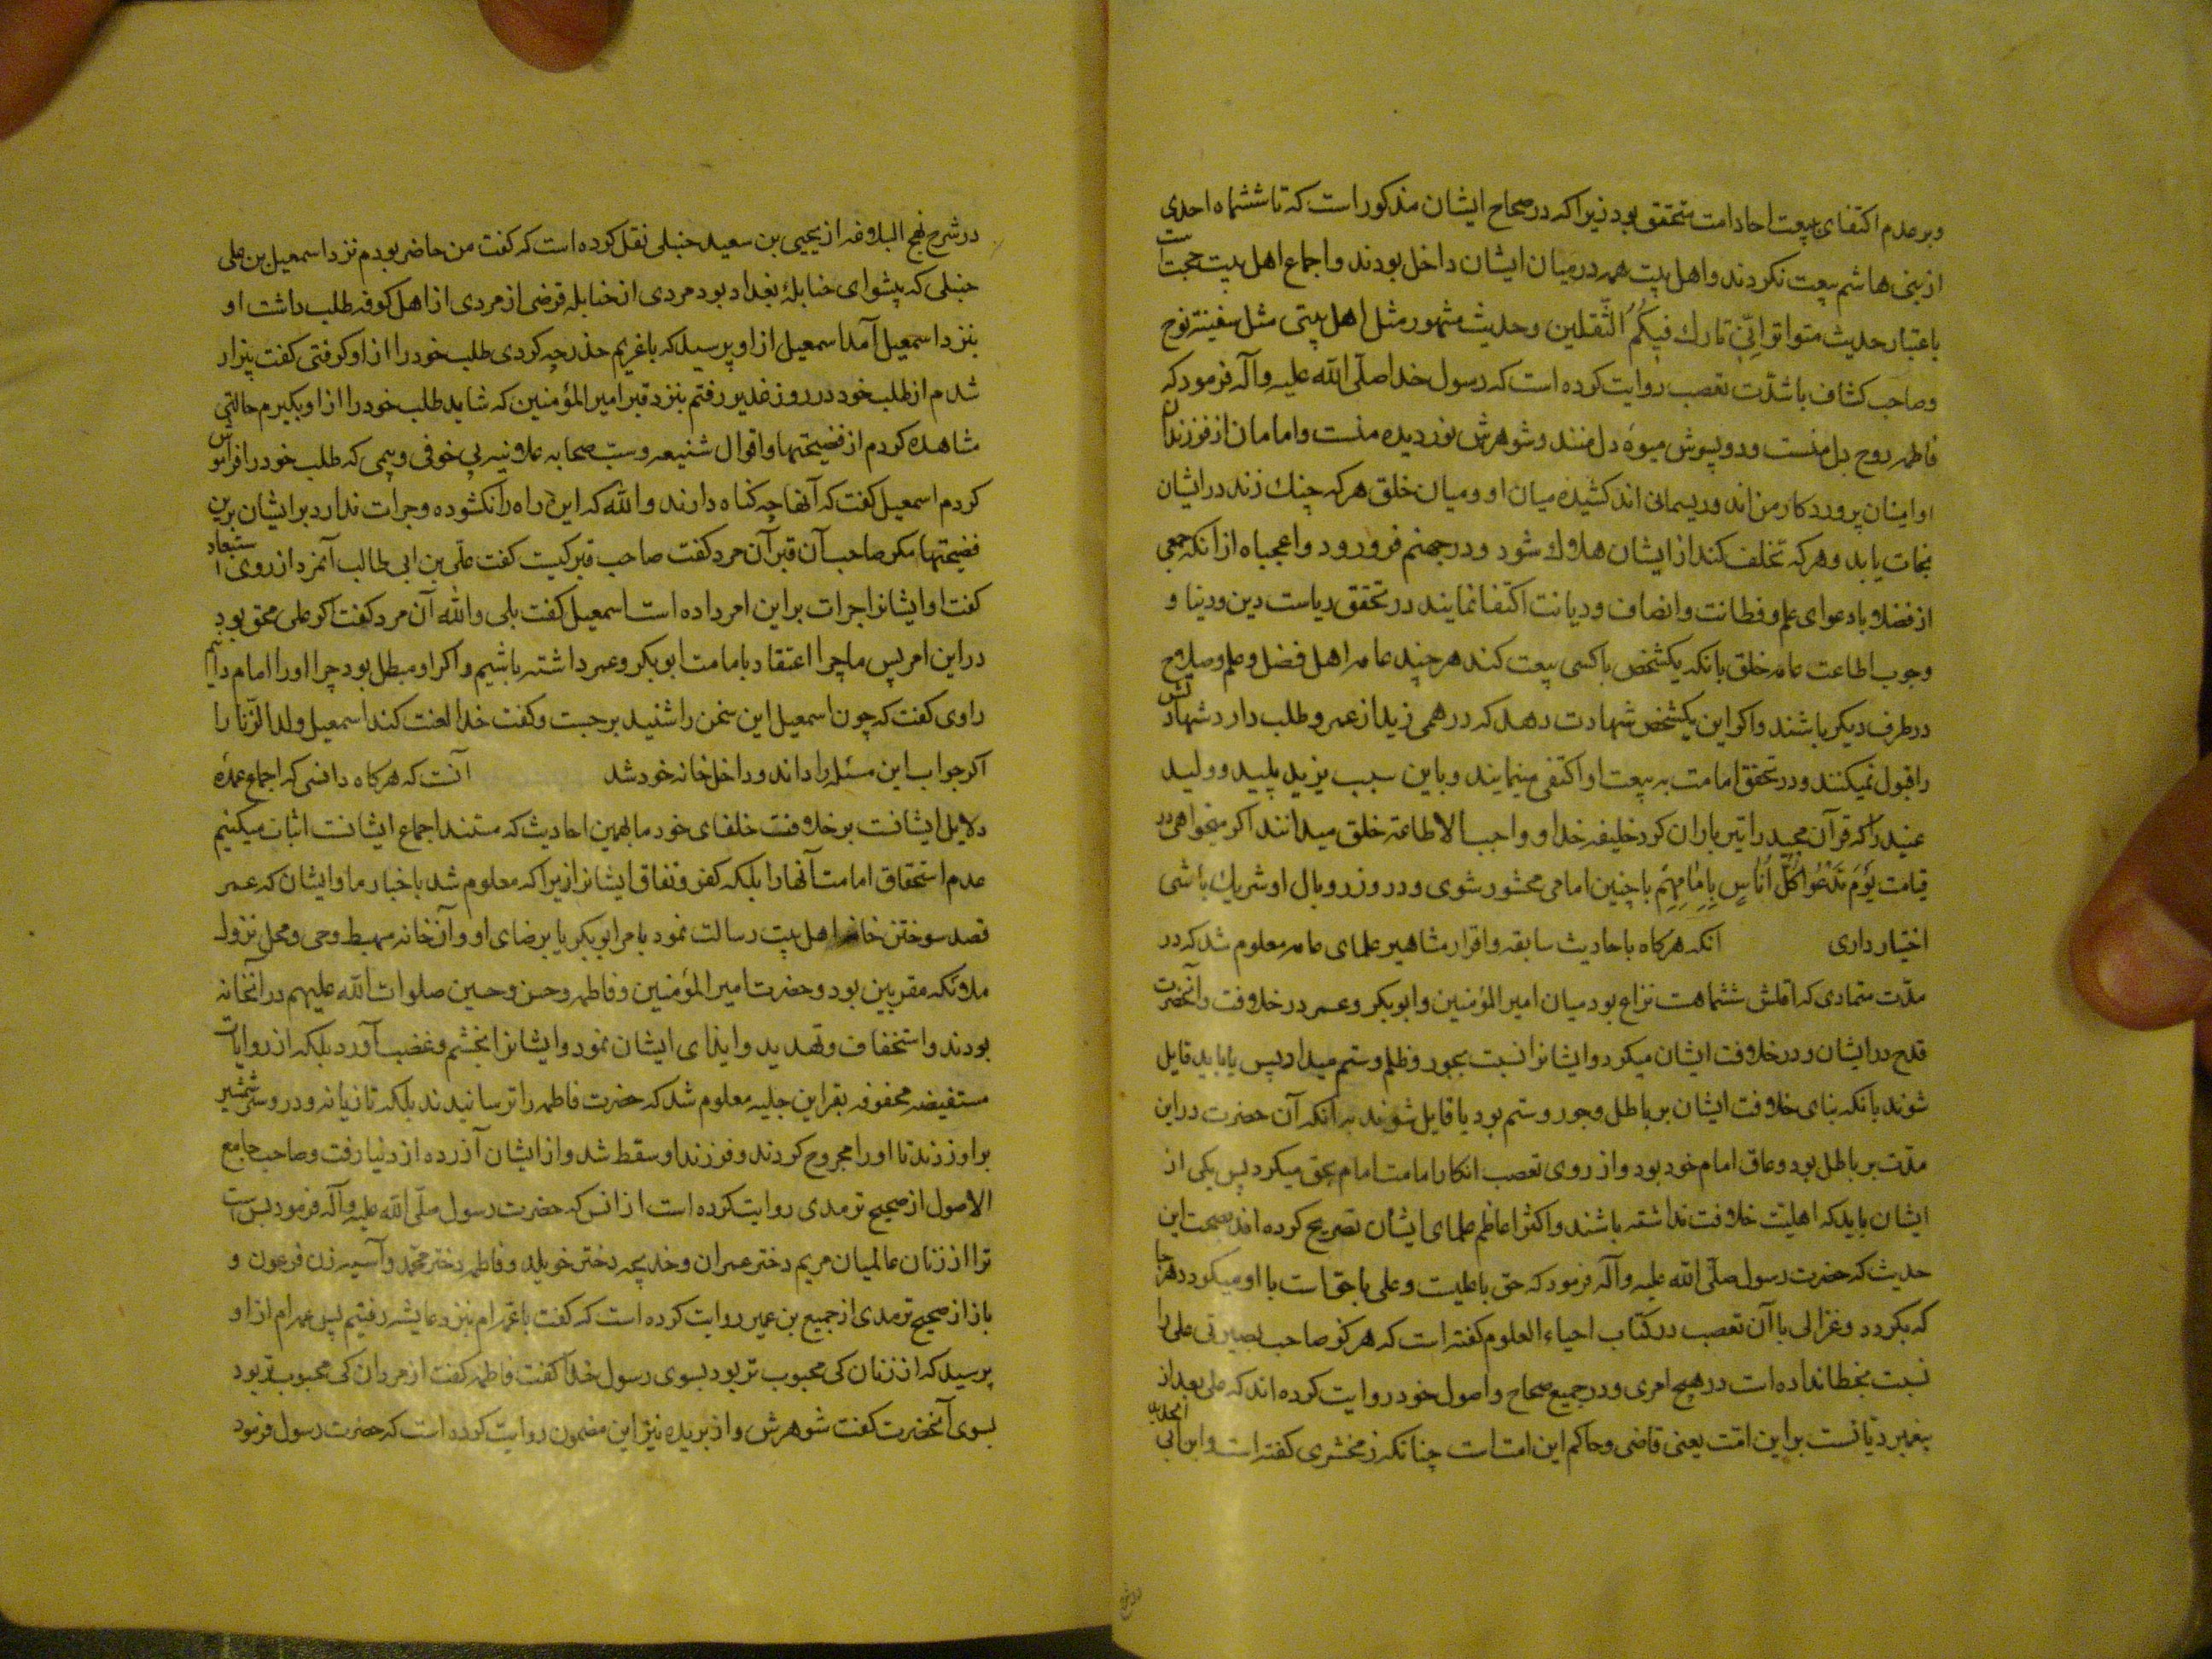 وبر عدم اکتفای ببیعت احاد امت متحقق بود زیرا که در صحاح ایشان مذکور است که تا ششماه احدی
از بنی هاشم بیعت نکردند و اهل بیت همه در میان ایشان داخل بودند و اجماع اهل بیت حجت است
باعتبار حدیث متواتر اِنّی تارك فیکُمُ الثَّقَلین و حدیث مشهور مثل اهل بیتی مثل سفینة نوح
و صاحب کشاف با شدّت تعصب روایت کرده است که رسول خدا صلّی الله علیه و آله فرمود که
فاطمه روح دل منست و دو پسرش میوهٔ دل منند و شوهرش نور دیده منست و امامان از فرزندان
او امینان پروردکار من اند و ریسمانی اند کشیده میان او و میان خلق هر که چنك زند در ایشان
نجات یابد و هر که تخلف کند از ایشان هلاك شود و در جهنم فرو رود و اعجباه از آنکه جمعی
از فضلا با دعوای علم و فطانت و انصاف و دیانت اکتفا نمایند در تحقق ریاست دین و دنیا و
وجوب اطاعت عامه خلق بانکه یکشخص با کسی بیعت کند هر چند عامه اهل فضل و علم و صلاح
در طرف دیکر باشند و اکر این یکشخص شهادت دهد که درهمی زید از عمرو طلب دارد شهادتش
را قبول نمیکنند و در تحقق امامت به بیعت او اکتفی مینمایند و باین سبب یزید پلید و ولید
عنید را که قرآن مجید را تیر باران کرد خلیفه خدا و واجب الاطاعة خلق میدانند اکر میخواهی در
قیامت یَوْمَ نَدْعُوا کُلَّ اُنَاسٍ بِاِمَامِهِم با چنین امامی محشور شوی و در وزر و وبال او شریك باشی
اختیار داری آنکه هرکاه باحادیث سابقه و اقرار مشاهیر علمای عامه معلوم شد که در
مدّت متمادی که اقلش ششماهست نزاع بود میان امیر المؤمنین و ابوبکر و عمر در خلافت و آنحضرت
قدح در ایشان و در خلافت ایشان میکرد و ایشانرا نسبت بجور و ظلم و ستم میداد پس یا باید قایل
شوند بانکه بنای خلافت ایشان بر باطل و جور و ستم بود یا قایل شوند به آنکه آن حضرت در این
مدّت بر باطل بود و عاق امام خود بود و از روی تعصب انکار امامت امام بحق میکرد پس یکی از
ایشان باید که اهلیّت خلافت نداشته باشند و اکثر اعاظم علمای ایشان تصریح کرده اند بصحت این
حدیث که حضرت رسول صلّی الله علیه و آله فرمود که حق با علیست و علی با حق است با او میکردد هر جا
که بکردد و غزالی با آن تعصب در کتاب احیاء العلوم کفته است که هرکز صاحب بصیرتی علی را
نسبت بخطا نداده است در هیچ امری و در جمیع صحاح و اصول خود روایت کرده اند که علی بعد از
پیغمبر دیّانست بر این امّت یعنی قاضی و حاکم این امت است چنانکه زمخشری کفته است و ابن ابی الحدید
در شرح
در شرح نهج البلاغه از یحیی بن سعید حنبلی نقل کرده است که کفت من حاضر بودم نزد اسمعیل بن علی
حنبلی که پیشوای حنابلهٔ بغداد بود مردی از حنابله قرضی از مردی از اهل کوفه طلب داشت او
بنزد اسمعیل آمد اسمعیل از او پرسید که با غریم خود چه کردی طلب خود را از او کرفتی کفت بیزار
شدم از طلب خود در روز غدیر رفتم بنزد قبر امیر المؤمنین که شاید طلب خود را از او بکیرم حالتی
مشاهده کردم از فضیحتها و اقوال شنیعه و سبّ صحابه علانیه بی خوفی و بیمی که طلب خود را فراموش
کردم اسمعیل کفت که آنها چه کناه دارند والله که این راه را نکشوده و جرات نداد بر ایشان برین
فضیحتها مکر صاحب آن قبر آن مرد کفت صاحب قبر کیست کفت علی بن ابی طالب آنمرد از روی استبعاد
کفت او ایشانرا جرات بر این امر داده است اسمعیل کفت بلی والله آن مرد کفت اکر علی محق بود
در این امر پس ما چرا اعتقاد بامامت ابوبکر و عمر داشته باشیم و اکر او مبطل بود چرا او را امام دانیم
راوی کفت که چون اسمعیل این سخن را شنید برجست و کفت خدا لعنت کند اسمعیل ولد الزّنا را
اکر جواب این مسئله را داند و داخل خانه خود شد آنست که هرکاه دانسی که اجماع عمدهٔ
دلایل ایشانست بر خلافت خلفای خود ما بهمین احادیث که مستند اجماع ایشانست اثبات میکنیم
عدم استحقاق امامت آنها را بلکه کفر و نفاق ایشانرا زیرا که معلوم شد باخبار ما و ایشان که عمر
قصد سوختن خانه اهل بیت رسالت نمود بامر ابوبکر یا برضای او و آن خانه مهبط وحی و محل نزول
ملائکه مقربین بود و حضرت امیر المؤمنین و فاطمه و حسن و حسین صلوات الله علیهم در آنخانه
بودند و استخفاف و تهدید و ایذای ایشان نمود و ایشانرا بخشم و غضب آورد بلکه از روایات
مستفیضه محفوفه بقراین جلیه معلوم شد که حضرت فاطمه را ترسانیدند بلکه تازیانه و در و شمشیر
بر او زدند تا او را مجروح کردند و فرزند او سقط شد و از ایشان آزرده از دنیا رفت و صاحب جامع
الاصول از صحیح ترمدی روایت کرده است از انس که حضرت رسول صلّی الله علیه و آله فرمود بس است
ترا از زنان عالمیان مریم دختر عمران و خدیجه دختر خویلد و فاطمه دختر محمّد و آسیه زن فرعون و
باز از صحیح ترمدی از جمیع بن عمیر روایت کرده است که کفت با عمّه ام بنزد عایشه رفتیم پس عمه ام از او
پرسید که از زنان کی محبوب تر بود بسوی رسول خدا کفت فاطمه کفت از مردان کی محبوب تر بود
بسوی آنحضرت کفت شوهرش و از بریده نیز این مضمون روایت کرده است که حضرت رسول فرمود